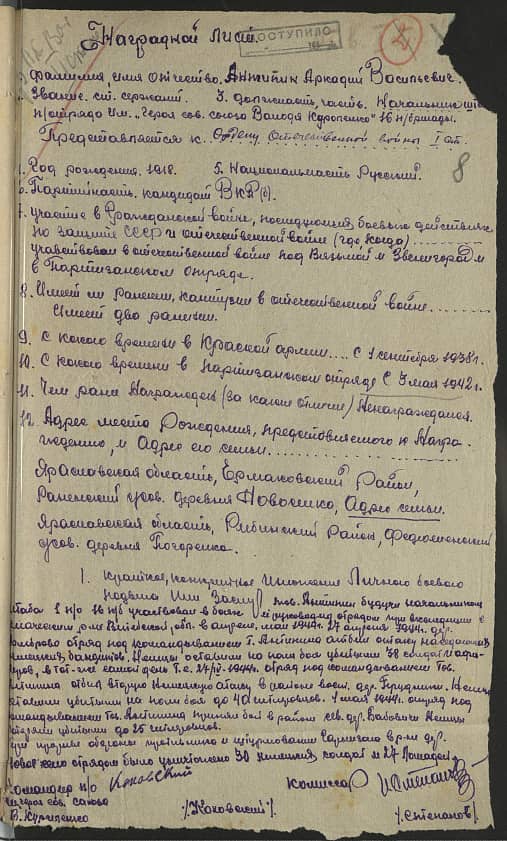 Наградной Лист.
ПОСТУПИЛО
Фамилия, имя отчество. Антипин Аркадий Васильевич.
Звание. ст. сержант. 3. должность, часть. Начальник
п/отряда им. "Героя сов. союза Володи Куриленко" 16 п/бригады.
Представляется к. Ордену Отечественной войны I ст.
8
1. Год рождения. 1918. 5. Национальность Русский.
6. Партийность. кандидат ВКП(б).
7. участие в Гражданской войне, последующих боевых действиях
по защите СССР и отечественной войне (где, когда)
участвовал в отечественной войне под Вязьмой и Звенигород и
в Партизанском отряде.
8. Имеет ли ранения, контузии в отечественной войне.
Имеет два ранения.
9. С какого времени в Красной армии.... С 1 сентября 1938 г.
10. С какого времени в партизанском отряде С 3 мая 1942 г.
11. Чем ранее Награжден (за какие отличия) Ненаграждался.
12. Адрес место Рождения, представляемого к Награ-
ждению, и Адрес его семьи.
Ярославская область, Ермаковский Район,
усов. деревня Новоселка, Адрес семьи.
Ярославская область, Рыбинский Район,
усов. деревня
1. Краткое, конкретное Изложение Личного боевого
подвига Или Заслуг тов. Антипин будучи начальником
штаба 1 п/о 16 п/б участвовал в боях и руководил отрядом при
в апреле, мае 1944 г. 27 апреля 1944 г. дер.
отряд под командованием Т. Антипина отбил атаку
немецких бандитов. Немцы оставили на поле боя убитыми 38 солдат и офи-
церов, в тот-же самый день т.е. 27/IV-1944 г. отряд под командованием тов.
Антипина отбил вторую немецкую атаку в районе вост. дер. Немцы
оставили убитыми на поле боя до 40 гитлеровцев. 1 мая 1944 г. отряд под
командованием тов. Антипина принял бой в районе сев. дер. Немцы
потеряли убитыми до 25 гитлеровцев.
отрядом было уничтожено 30 немецких солдат и 27 лошадей
Командир п/о
им героя сов. союза
В. Куриленко
/Жаковский/
Комиссар
/Степанов/